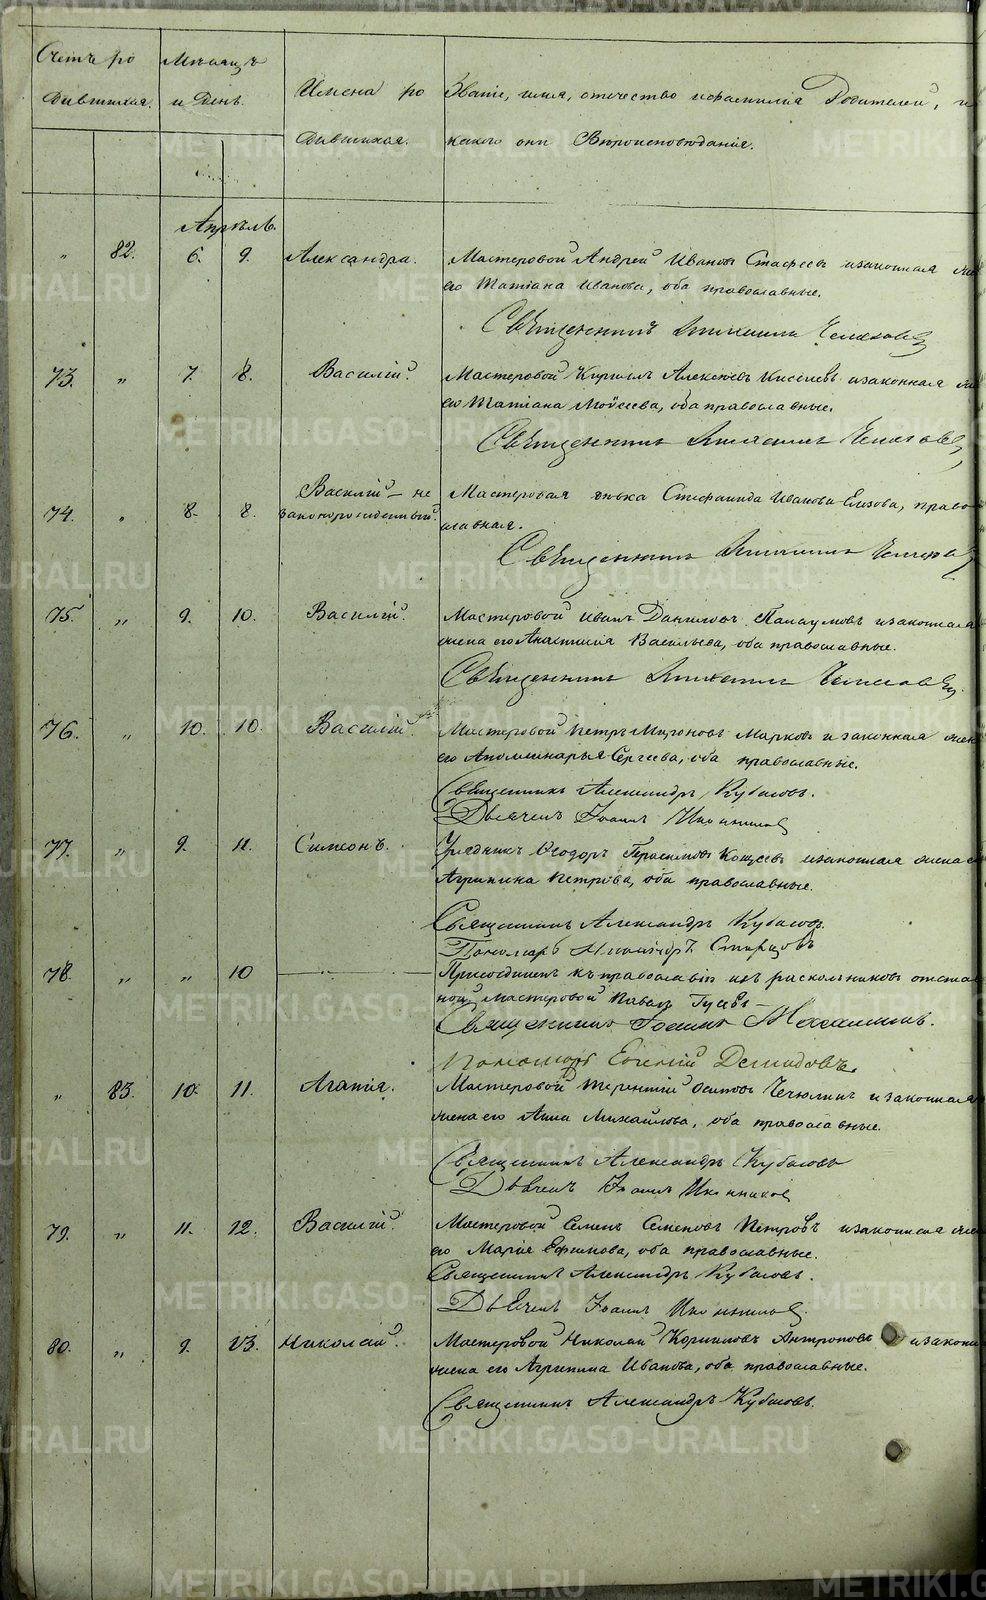 METRIKI.GASO-URAL.RU
Счетъ ро
дившихся.
Мѣсяцъ
и день.
Имена ро
дившихся.
Званіе, имя, отечество и фамилія Родителей, и
какого они Вѣроисповѣданія.
Апрѣль.
„ 82. 6. 9. Александра. Мастеровой Андрей Ивановъ и законная
его Татіана Иванова, оба православные.
Священникъ
73. „ 7. 8. Василій. Мастеровой Кириллъ Алексѣевъ Киселевъ и законная
его Татіана Мойсеева, оба православные.
Священникъ
74. „ 8. 8. Василій – не
законорожденный. Мастерская Иванова право
славная.
Священникъ
75. „ 9. 10. Василій. Мастеровой Иванъ Даниловъ и законная
жена его Анастасія Васильева, оба православные.
Священникъ
76. „ 10. 10. Василій. Мастеровой Петръ Мироновъ Марковъ и законная жена
его Аполлинарья Сергѣева, оба православные.
Священникъ Александръ Кубасовъ.
Дьячекъ Іоаннъ
77. „ 9. 11. Симеонъ. Урядникъ Ѳеодоръ Герасимовъ и законная жена
Агрипина Петрова, оба православные.
Священникъ Александръ Кубасовъ.
Пономарь
78. „ „ 10 Присоединенъ къ православію изъ раскольниковъ отстав
ной мастеровой Павелъ Гусевъ
Священникъ Іоаннъ
Пономарь Евгеній Демидовъ.
„ 83. 10. 11. Агапія. Мастеровой Терентій Осиповъ и законная
жена его Анна Михайлова, оба православные.
Священникъ Александръ Кубасовъ
Дьячекъ Іоаннъ
79. „ 11. 12. Василій. Мастеровой Семенъ Семеновъ Петровъ и законная жена
его Марія Ефимова, оба православные.
Священникъ Александръ Кубасовъ.
Дьячекъ Іоаннъ
80. „ 9. 13. Николай. Мастеровой Николай Корниловъ Антроповъ и законн
жена его Агрипина Иванова, оба православные.
Священникъ Александръ Кубасовъ.